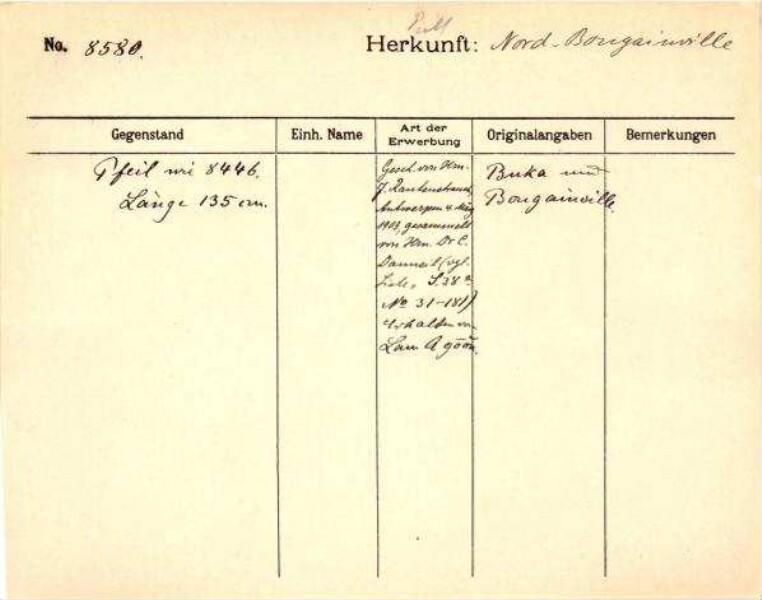 No. 8580.
Herkunft: Nord-Bougainville
Gegenstand
Einh. Name
Art der Erwerbung
Originalangaben
Bemerkungen
Pfeil wie 8446.
Länge 135 cm.
Gesch. von Hrn.
J. Rautenstrauch,
Antwerpen 4. März
1903, gesammelt
von Hrn. Dr C.
Danneil (vgl.
Liste, S. 38a
No 31-181)
erhalten von
Buka und
Bougainville.